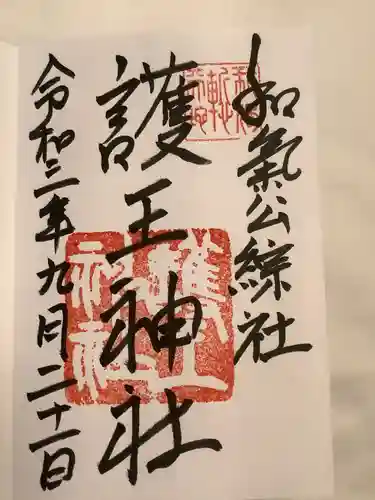 和氣公綜社
護王神社
令和三年九月二十一日
護王神社